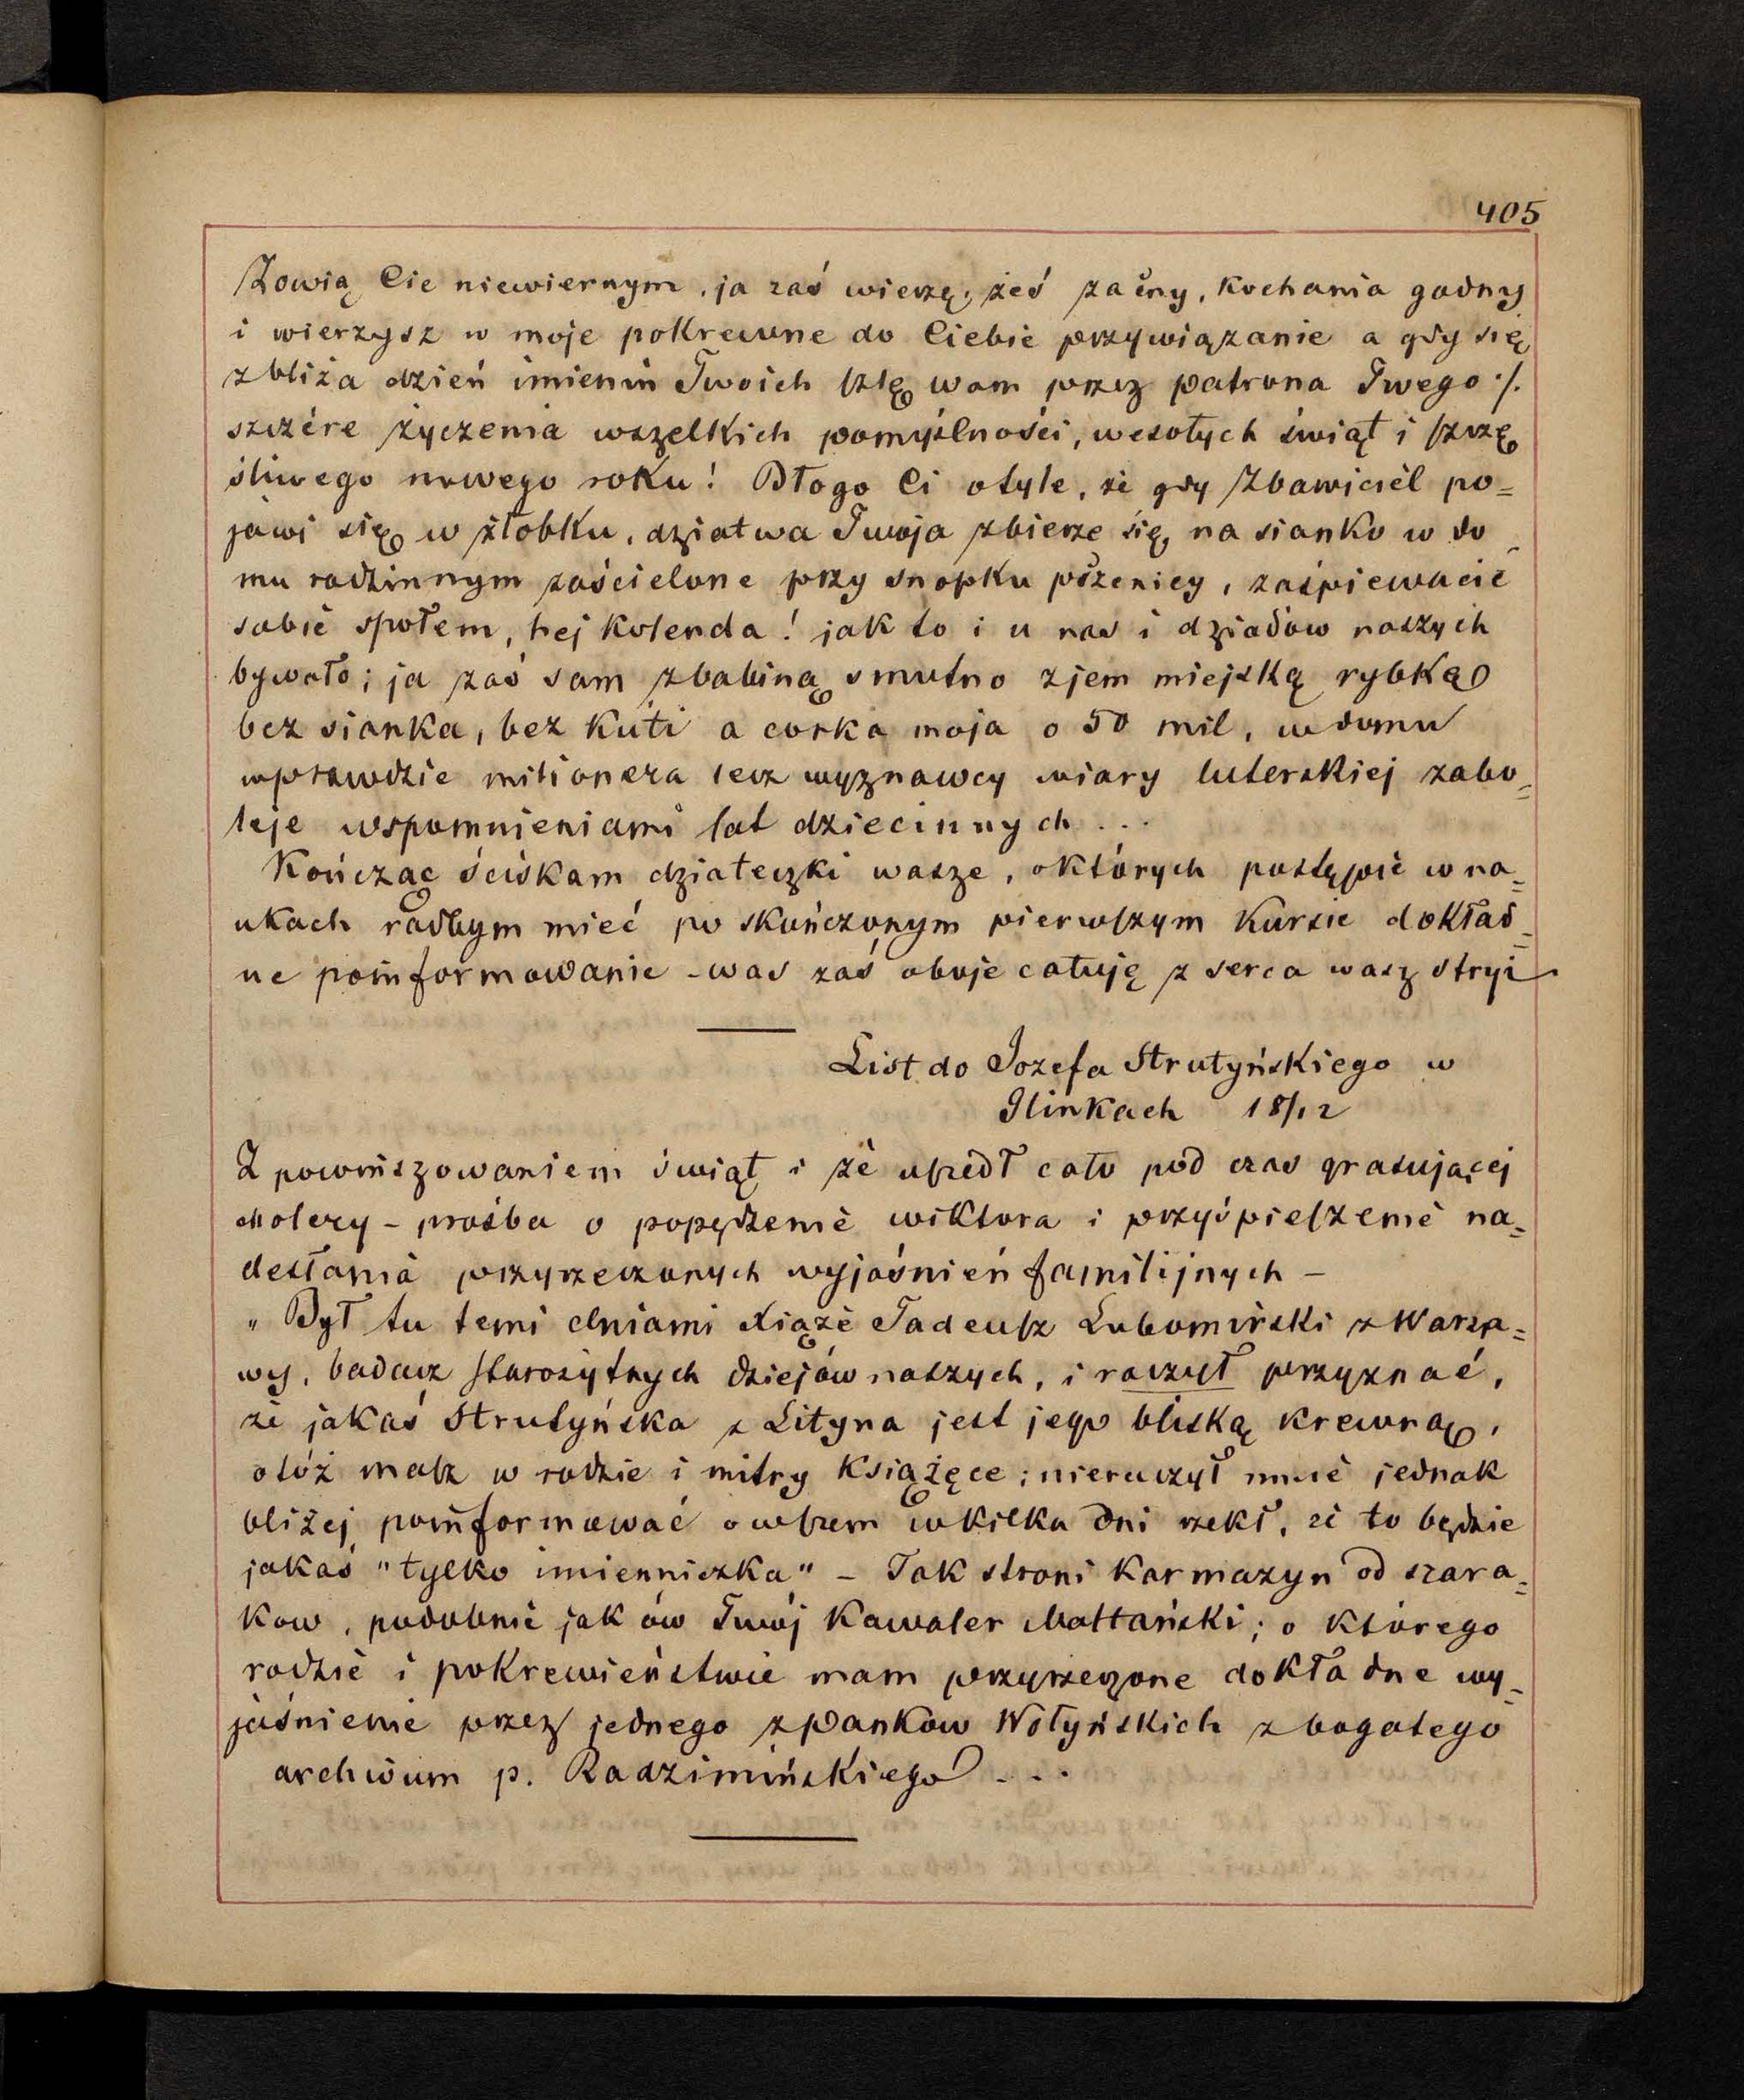 405
Zowią Cie niewiernym, ja zaś wierzę, żeś zacny, kochania godny
i wierzysz w moje pokrewne do Ciebie przywiązanie a gdy się
zbliża dzień imienin Twoich szlę wam przez patrona Twego ./.
szczére życzenia wszelkich pomyślności, wesołych świąt i szczę
śliwego nowego roku! Błogo Ci otyle, że gdy Zbawiciel po=
jawi się w żłobku, dziatwa Twoja zbierze się na sianko w do_
mu rodzinnym zaścielone przy snopku pszenicy, zaśpiewacie
sobie społem, hej kolenda! jak to i u nas i dziadow naszych
bywało; ja zaś sam zbabiną smutno zjem miejską rybką
bez sianka, bez kuti a corka moja o 50 mil, w domu
wprawdzie milionera lecz wyznawcy wiary luterskiej zabo=
leje wspomnieniami lat dziecinnych ...
Kończąc ściskam dziateczki wasze, oktorych postępie w na=
ukach radbym mieć po skończonym pierwszym kursie dokład=
ne poinformowanie – was zaś oboje całuję z serca wasz stryi
List do Jozefa Strutyńskiego w
Ilinkach 18/12
Z powinszowaniem świąt i że uszedł cało pod czas grasującej
cholery – prośba o popędzenie wiktora i przyśpieszenie na=
desłania przyrzeczonych wyjaśnień familijnych –
„ Był tu temi dniami Xiąże Tadeusz Lubomirski z Warsza=
wy, badacz starożytnych dziejów naszych, i raczył przyznać,
że jakaś Strutyńska z Lityna jest jego bliską krewną,
otóż masz w rodzie i mitry książęce; nieraczył mnie jednak
bliżej poinformować owszem wkilka dni rzekł, że to będzie
jakaś "tylko imienniczka" – Tak stroni karmazyn od szara=
kow, podobnie jak ów Twój kawaler Maltański; o którego
rodzie i pokrewieństwie mam przyrzeczone dokładne wy_
jaśnienie przez jednego zpanków Wołyńskich z bogatego
archiwum p. Radzimińskiego ...